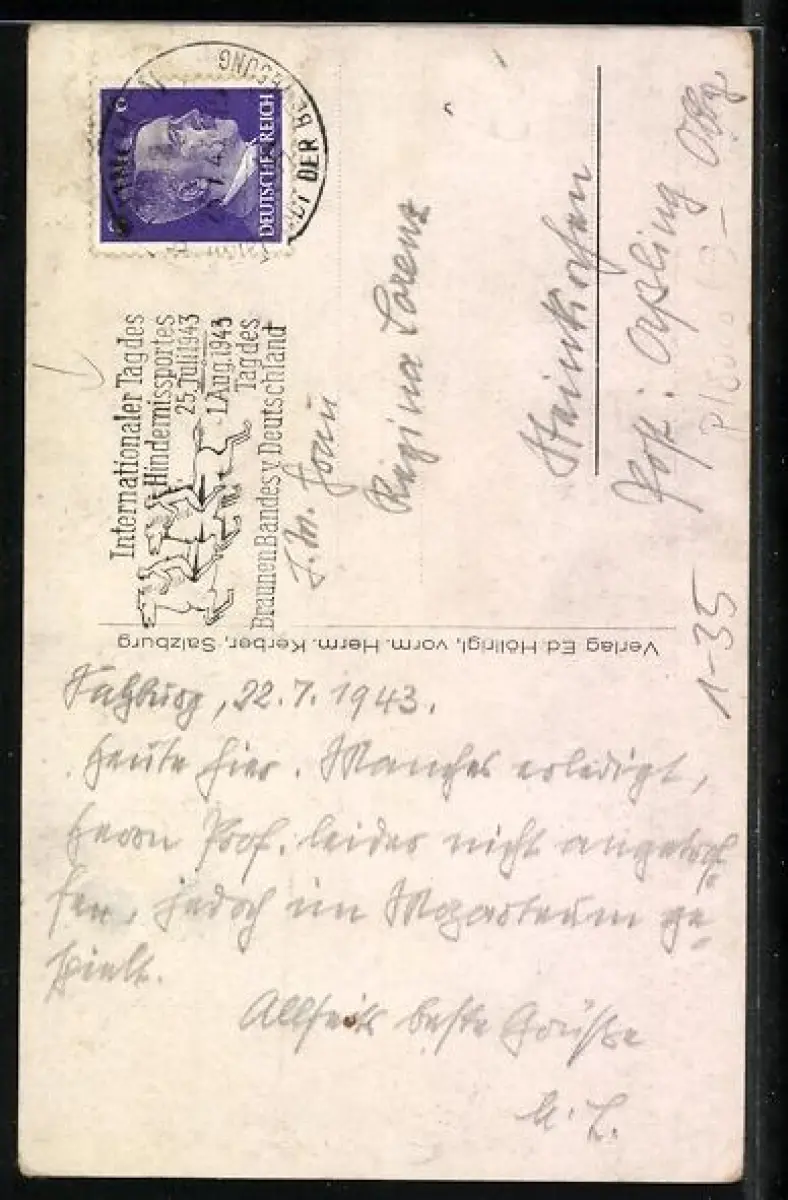 DEUTSCHES REICH
DER BEWEGUNG
Internationaler Tag des
Hindernissportes
25. Juli 1943
1. Aug. 1943
Tag des
Braunen Bandes v. Deutschland
Regina Lorenz
Steinkirchen
Post:
1-35
Verlag Ed. Höllrigl, vorm. Herm. Kerber, Salzburg
Salzburg, 22.7.1943.
Heute hier. Manches erledigt,
Herrn Prof. leider nicht angetrof-
fen, jedoch im Mozarteum ge-
spielt.
Allseits beste Grüße